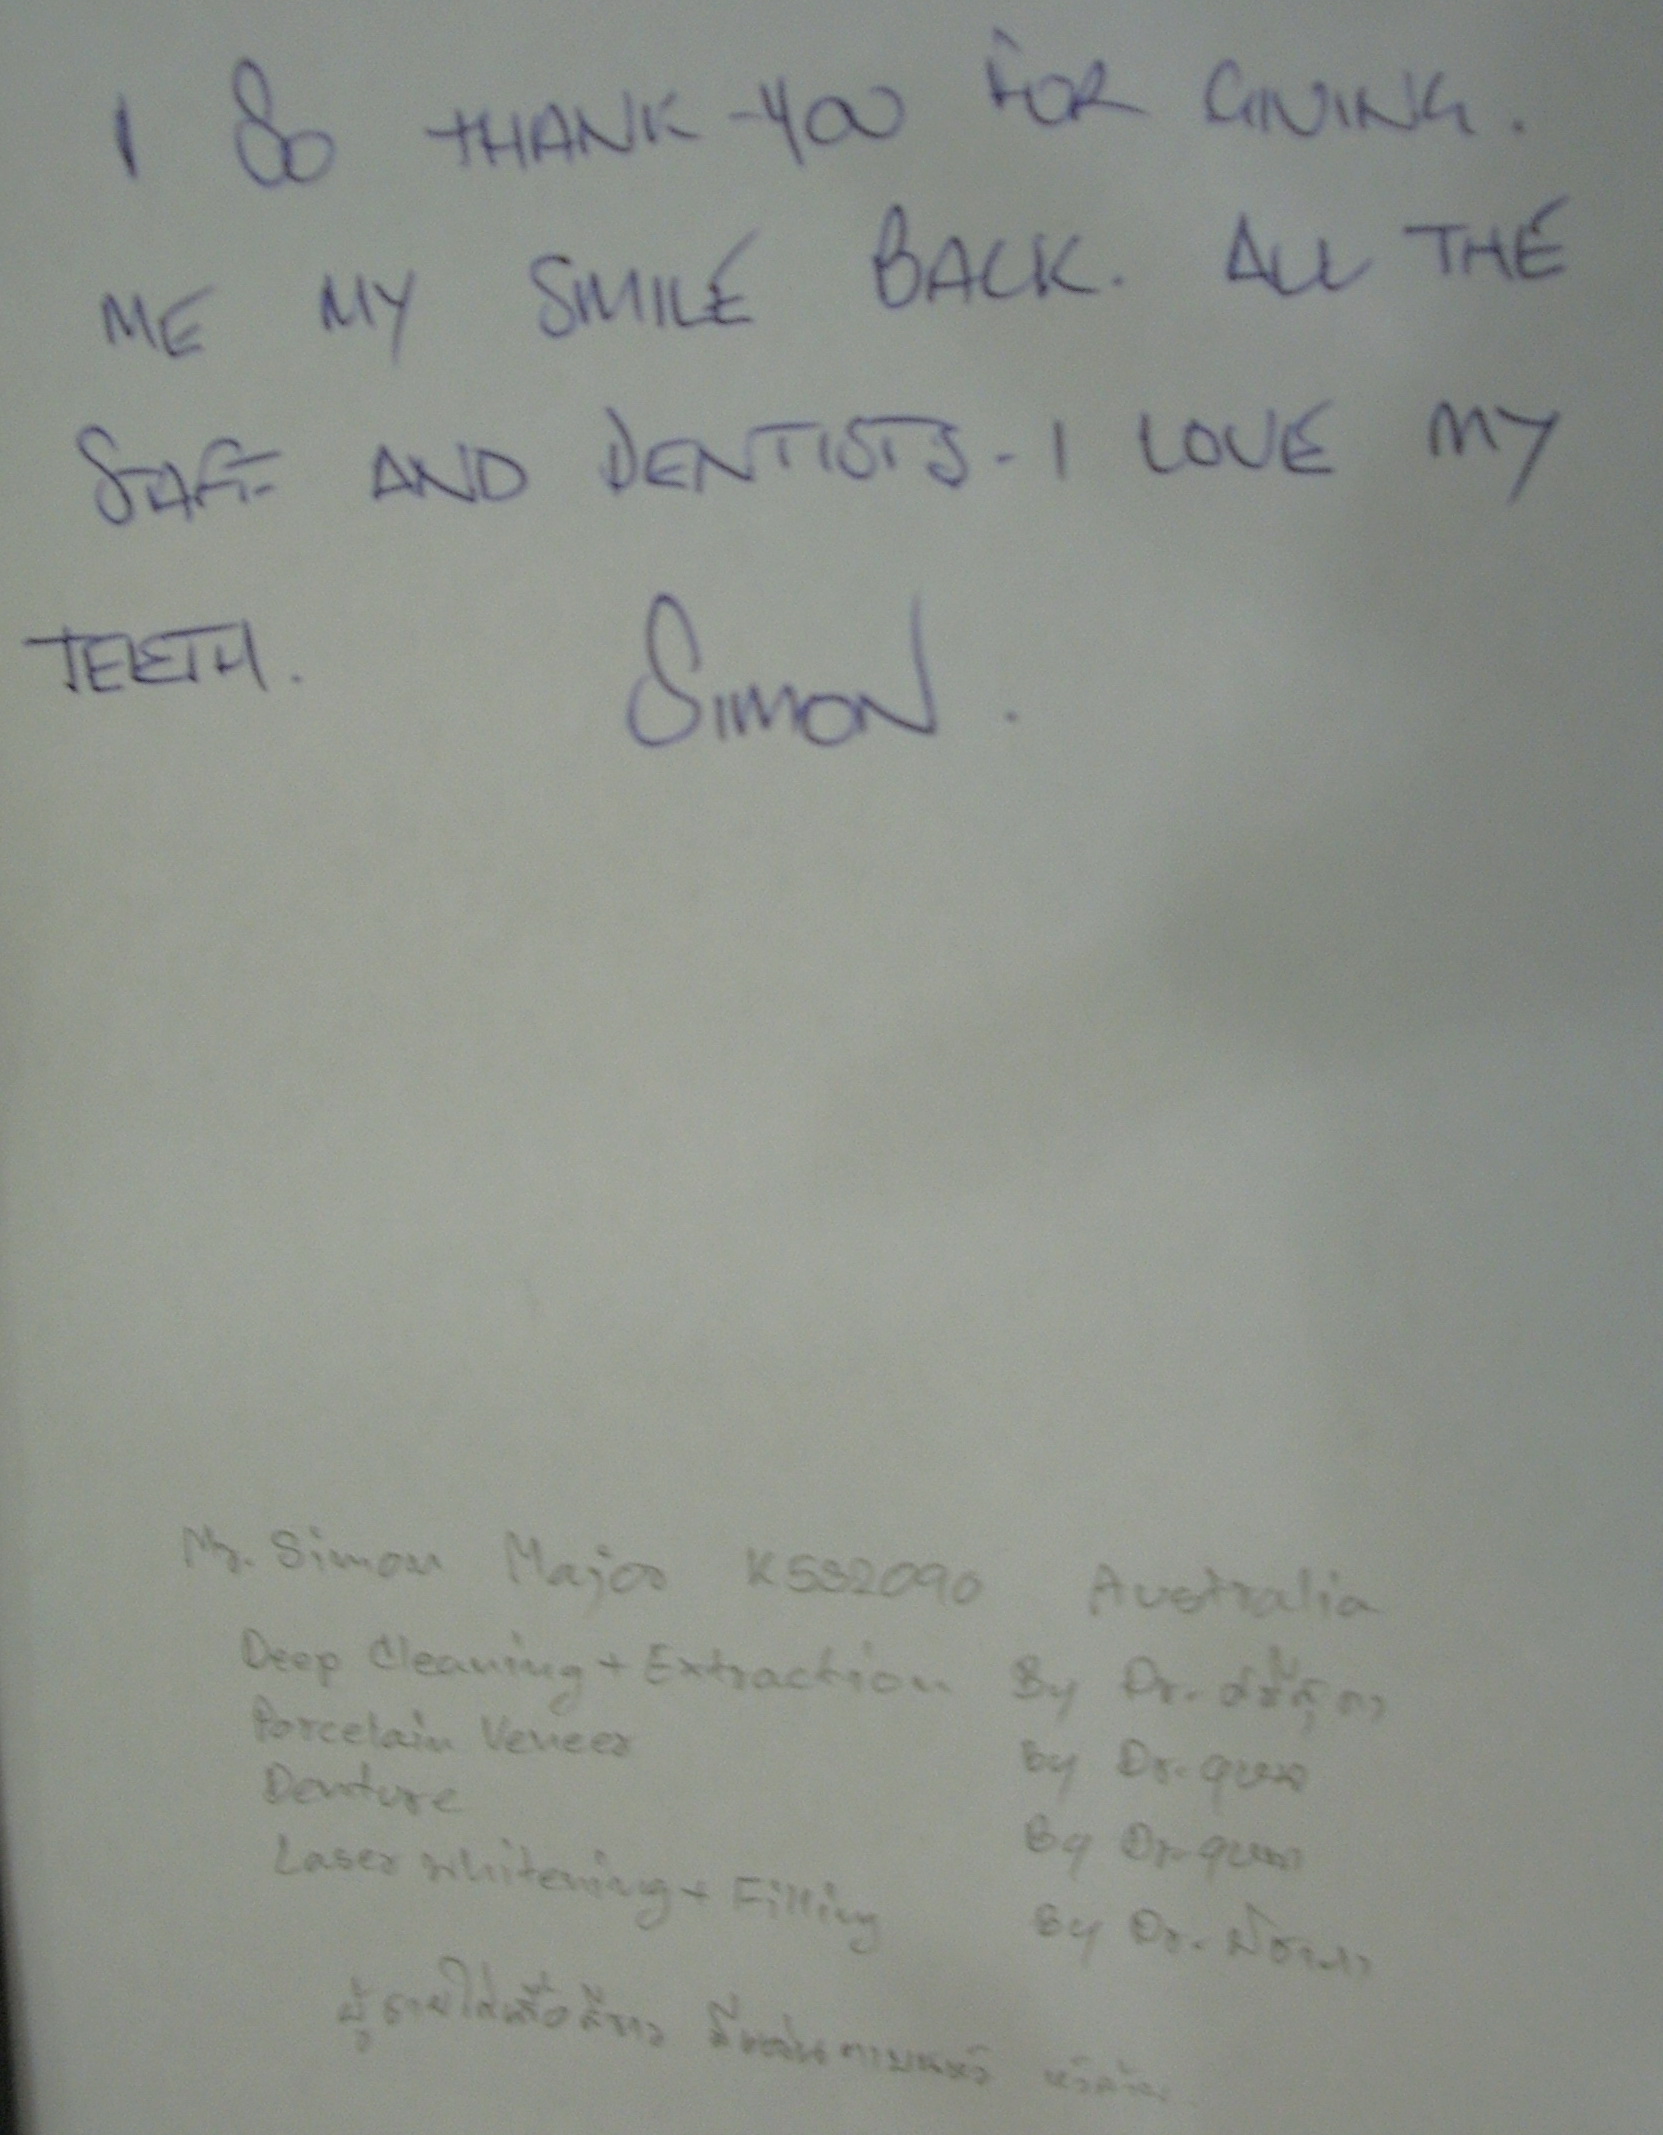 I So THANK-YOU FOR GIVING.
ME MY SMILE BACK. ALL THE
STAFF AND DENTISTS - I LOVE MY
TEETH. SIMON.
Mr. Simon Major K532090 Australia
Deep Cleaning + Extraction By Dr.
Porcelain Veneer By Dr.
Denture By Dr.
Laser whitening + Filling By Dr.
ผู้ชายใส่เสื้อสีขาว มีแว่นตาบนหัว